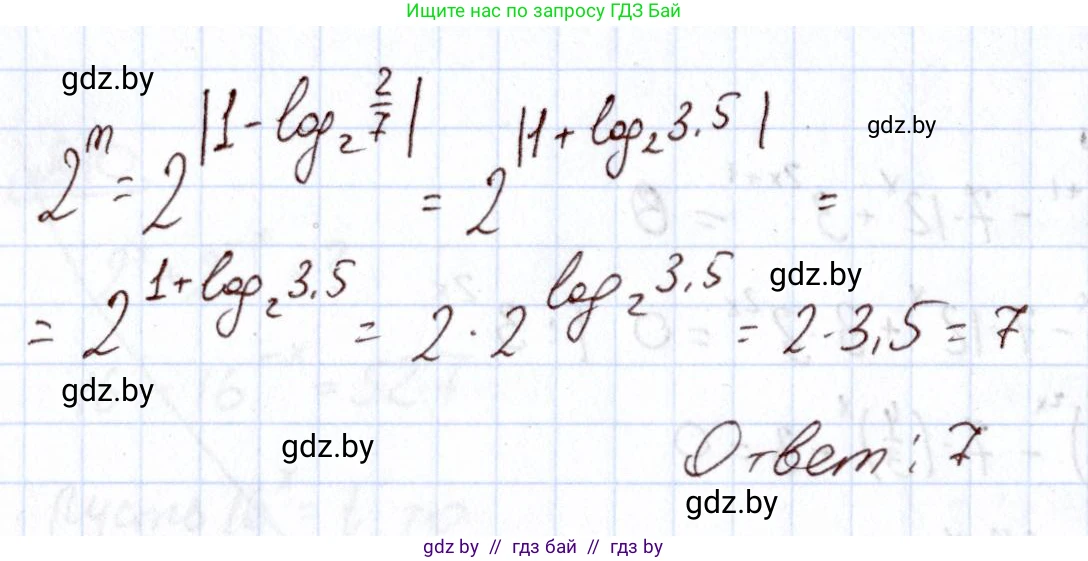 Ищите нас по запросу ГДЗ Бай
gdz.by
2^m = 2^|1 - log₂ 2/7| = 2^|1 + log₂ 3,5| =
gdz.by
= 2^(1 + log₂ 3,5) = 2 · 2^(log₂ 3,5) = 2 · 3,5 = 7
gdz.by
gdz.by
gdz.by
Ответ: 7
gdz.by
gdz.by // гдз бай // гдз by